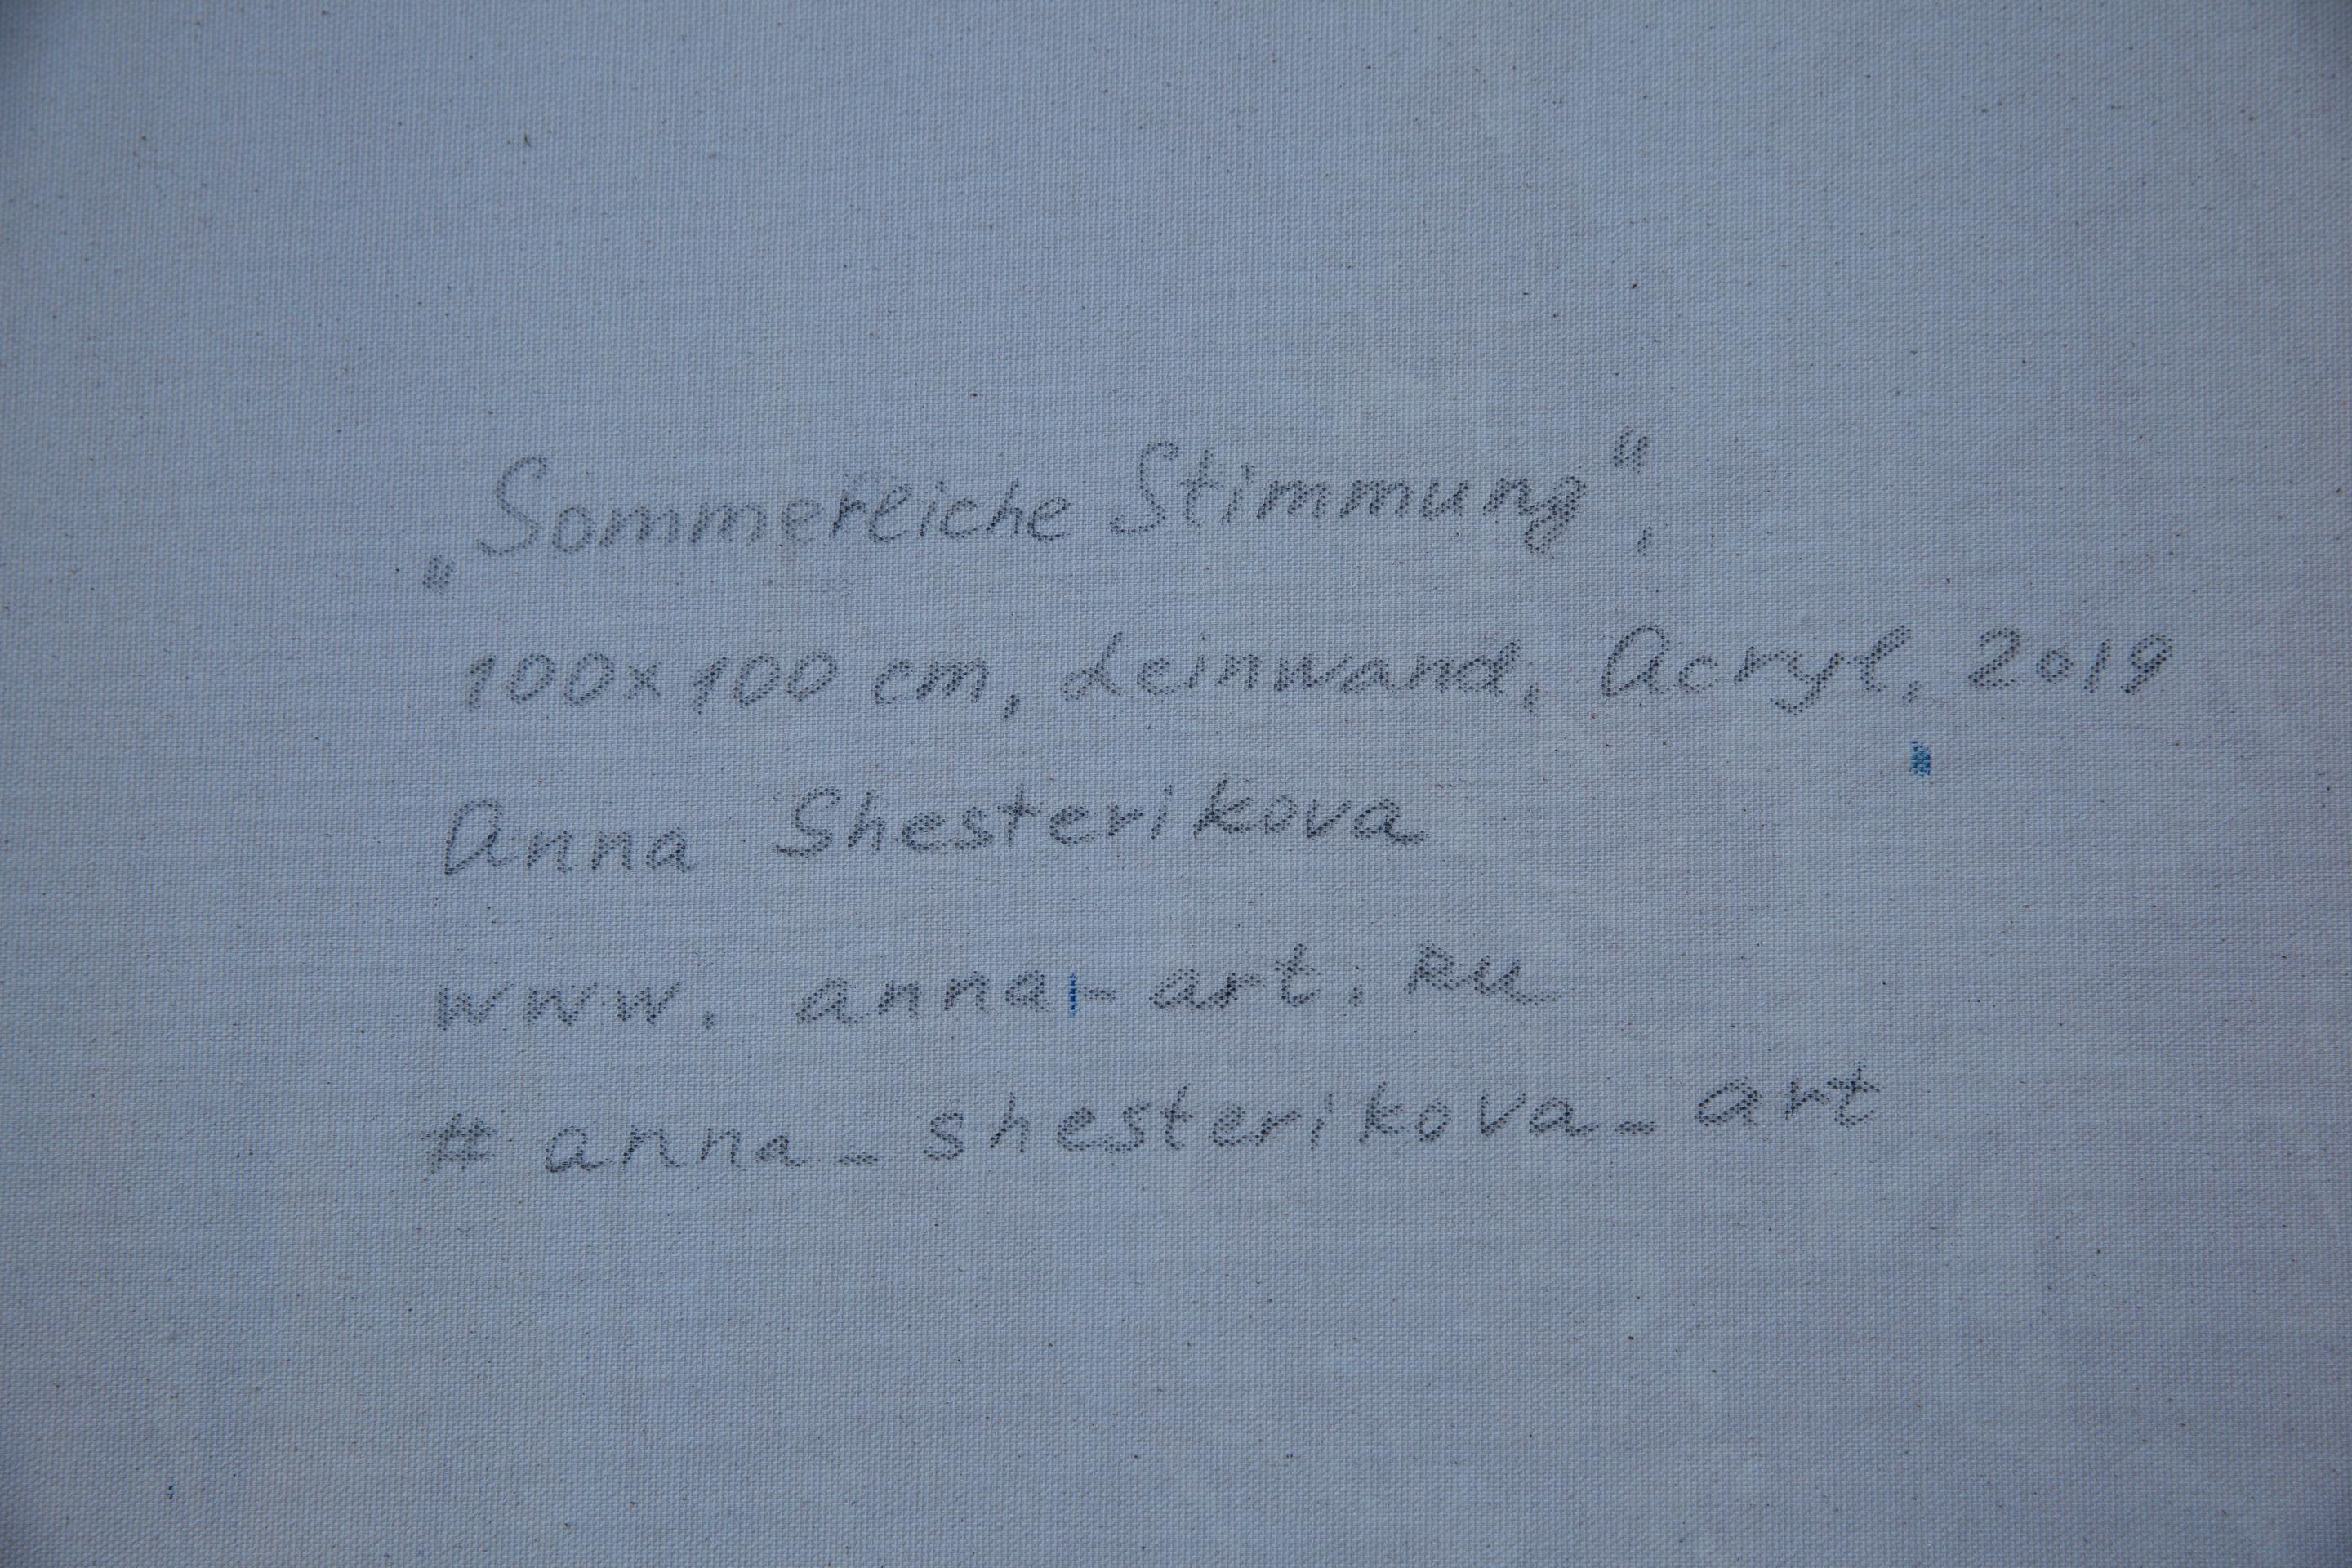 „Sommerliche Stimmung“,
100x100 cm, Leinwand, Acryl, 2019
Anna Shesterikova
www. anna-art. ru
# anna_shesterikova_art